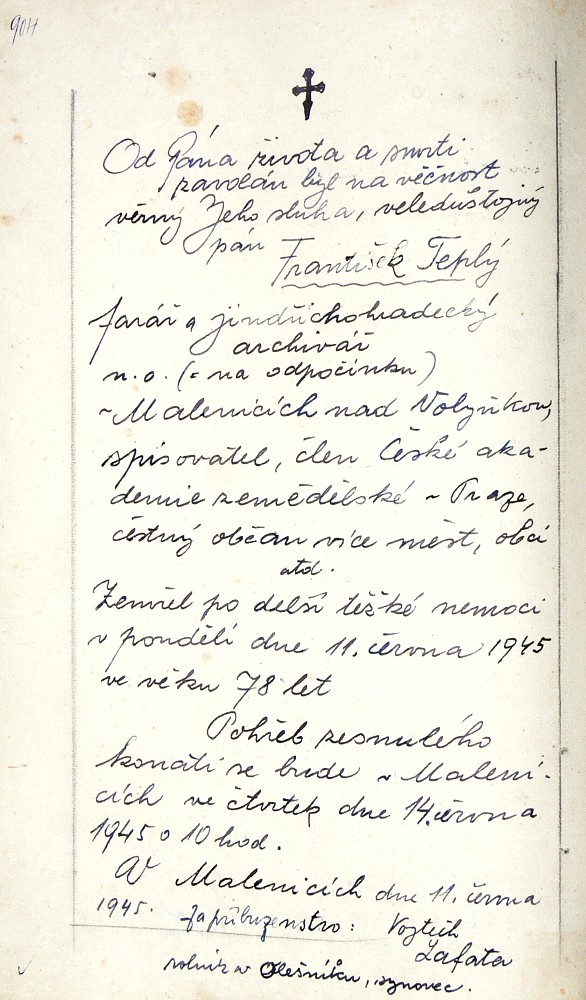 904
Od Pána života a smrti
zavolán byl na věčnost
věrný Jeho sluha, veledůstojný
pán
František Teplý
farář a jindřichohradecký
archivář
n. o. (= na odpočinku)
v Malenicích nad Volyňkou,
spisovatel, člen České aka-
demie zemědělské v Praze,
čestný občan více měst, obcí
atd.
Zemřel po delší těžké nemoci
v pondělí dne 11. června 1945
ve věku 78 let
Pohřeb zesnulého
konati se bude v Maleni-
cích ve čtvrtek dne 14. června
1945 o 10 hod.
V Malenicích dne 11. června
1945. Za příbuzenstvo: Vojtěch
Lafata
rolník v Olešníku, synovec.